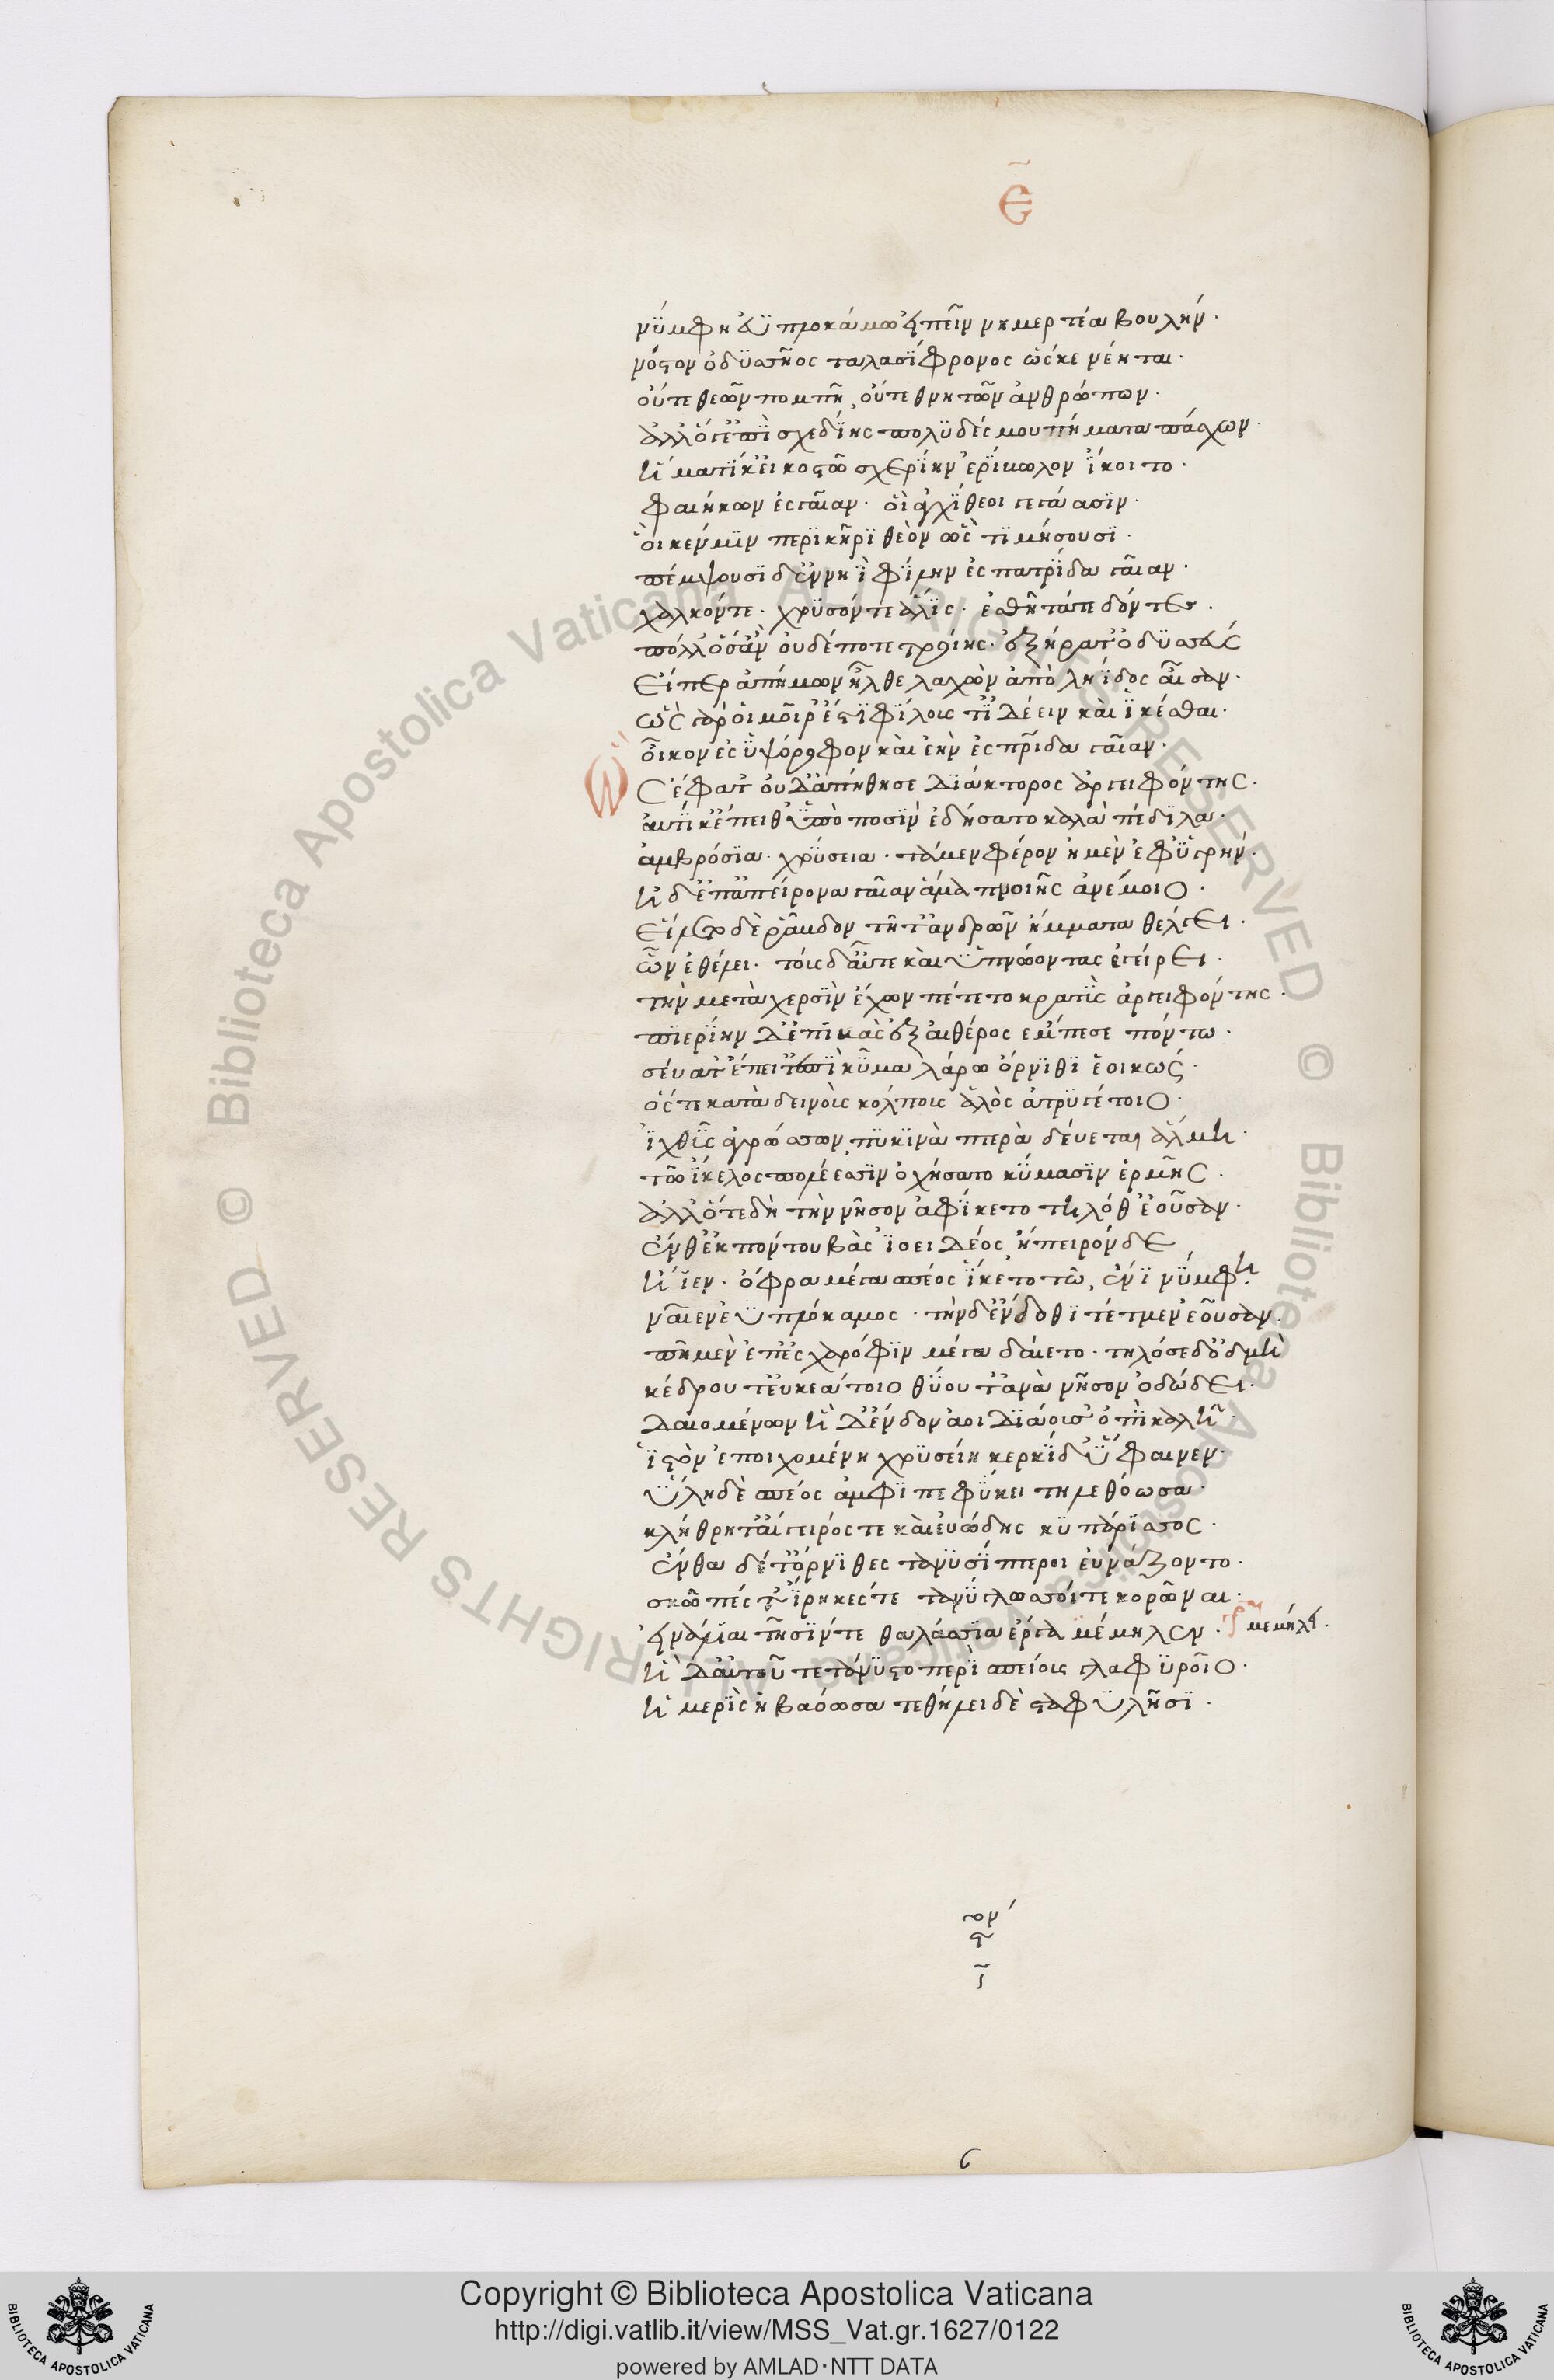 ε̃
νύμφη ἐϋπλοκάμω εἰπεῖν νημερτέα βουλήν·
νόστον ὀδυσσῆος ταλασίφρονος ὥς κε νέηται·
οὔτε θεῶν πομπῆ, οὔτε θνητῶν ἀνθρώπων·
ἀλλ' ὅγ' ἐπὶ σχεδίης πολυδέσμου πήματα πάσχων·
ἤματί κ' εἰκοστῶ σχερίην ἐρίβωλον ἵκοιτο·
φαιήκων ἐς γαῖαν· οἳ ἀγχίθεοι γεγάασιν·
οἵ κέν μιν περὶ κῆρι θεὸν ὣς τιμήσουσι·
πέμψουσι δ' ἐν νηῒ φίλην ἐς πατρίδα γαῖαν·
χαλκόν τε· χρυσόν τε ἅλις· ἐσθῆτά τε δόντες·
πόλλ' ὅσ' ἂν οὐδέποτε τροίης· ἐξήρατ' ὀδυσσεύς
εἴπερ ἀπήμων ἦλθε λαχὼν ἀπὸ ληΐδος αἶσαν·
ὣς γάρ οἱ μοῖρ' ἐστὶ φίλους τ' ἰδέειν καὶ ἱκέσθαι·
οἶκον ἐς ὑψόροφον καὶ ἑὴν ἐς πρίδα γαῖαν·
Ὣς ἔφατ' οὐδ' ἀπίθησε διάκτορος ἀργειφόντης·
αὐτίκ' ἔπειθ' ὑπὸ ποσὶν ἐδήσατο καλὰ πέδιλα·
ἀμβρόσια· χρύσεια· τά μεν φέρον ἠμὲν ἐφ' ὑγρήν·
ἠδ' ἐπ' ἀπείρονα γαῖαν ἅμα πνοιῆς ἀνέμοιο·
εἵλετο δὲ ῥάβδον τῆ τ' ἀνδρῶν ὄμματα θέλγει·
ὧν ἐθέλει· τοὺς δ' αὖτε καὶ ὑπνώοντας ἐγείρει·
τὴν μετὰ χερσὶν ἔχων πέτετο κρατὺς ἀργειφόντης·
πιερίην δ' ἐπιβὰς ἐξ αἰθέρος ἔμπεσε πόντω·
σεύατ' ἔπειτ' ἐπὶ κῦμα λάρω ὄρνιθι ἐοικώς·
ὅς τε κατὰ δεινοὺς κόλπους ἁλὸς ἀτρυγέτοιο·
ἰχθῦς ἀγρώσσων, πυκινὰ πτερὰ δεύεται ἅλμη·
τῶ ἴκελος πολέεσσιν ὀχήσατο κύμασιν ἑρμῆς·
ἀλλ' ὅτε δὴ τὴν νῆσον ἀφίκετο τηλόθ' ἐοῦσαν·
ἔνθ' ἐκ πόντου βὰς ἰοειδέος ἠπειρόνδε
ἤϊεν· ὄφρα μέγα σπέος ἵκετο τῶ, ἔνι νύμφη·
ναῖεν ἐϋπλόκαμος· τὴν δ' ἔνδοθι τέτμεν ἐοῦσαν·
πῦρ μὲν ἐπ' ἐσχαρόφιν μέγα δαίετο· τηλόσε δ' ὀδμὴ
κέδρου τ' εὐκεάτοιο θύου τ' ἀνὰ νῆσον ὀδώδει·
δαιομένων ἡ δ' ἔνδον ἀοιδιάουσ' ὀπὶ καλῆ·
ἱστὸν ἐποιχομένη χρυσείη κερκίδ' ὕφαινεν·
ὕλη δὲ σπέος ἀμφὶ πεφύκει τηλεθόωσα·
κλήθρη τ' αἴγειρός τε καὶ εὐώδης κυπάρισσος·
ἔνθα δέ τ' ὄρνιθες τανυσίπτεροι εὐνάζοντο·
σκῶπές τ' ἴρηκές τε τανύγλωσσοί τε κορῶναι·
εἰνάλιαι τῆσίν τε θαλάσσια ἔργα μέμηλεν· γρ μεμήλει·
ἡ δ' αὐτοῦ τετάνυστο περὶ σπείους γλαφυροῖο·
ἡμερὶς ἡβώωσα τεθήλει δὲ σταφυλῆσι·
6
Copyright © Biblioteca Apostolica Vaticana
http://digi.vatlib.it/view/MSS_Vat.gr.1627/0122
powered by AMLAD·NTT DATA
BIBLIOTECA APOSTOLICA VATICANA
BIBLIOTECA APOSTOLICA VATICANA
© Biblioteca Apostolica Vaticana ALL RIGHTS RESERVED © Biblioteca Apostolica Vaticana ALL RIGHTS RESERVED